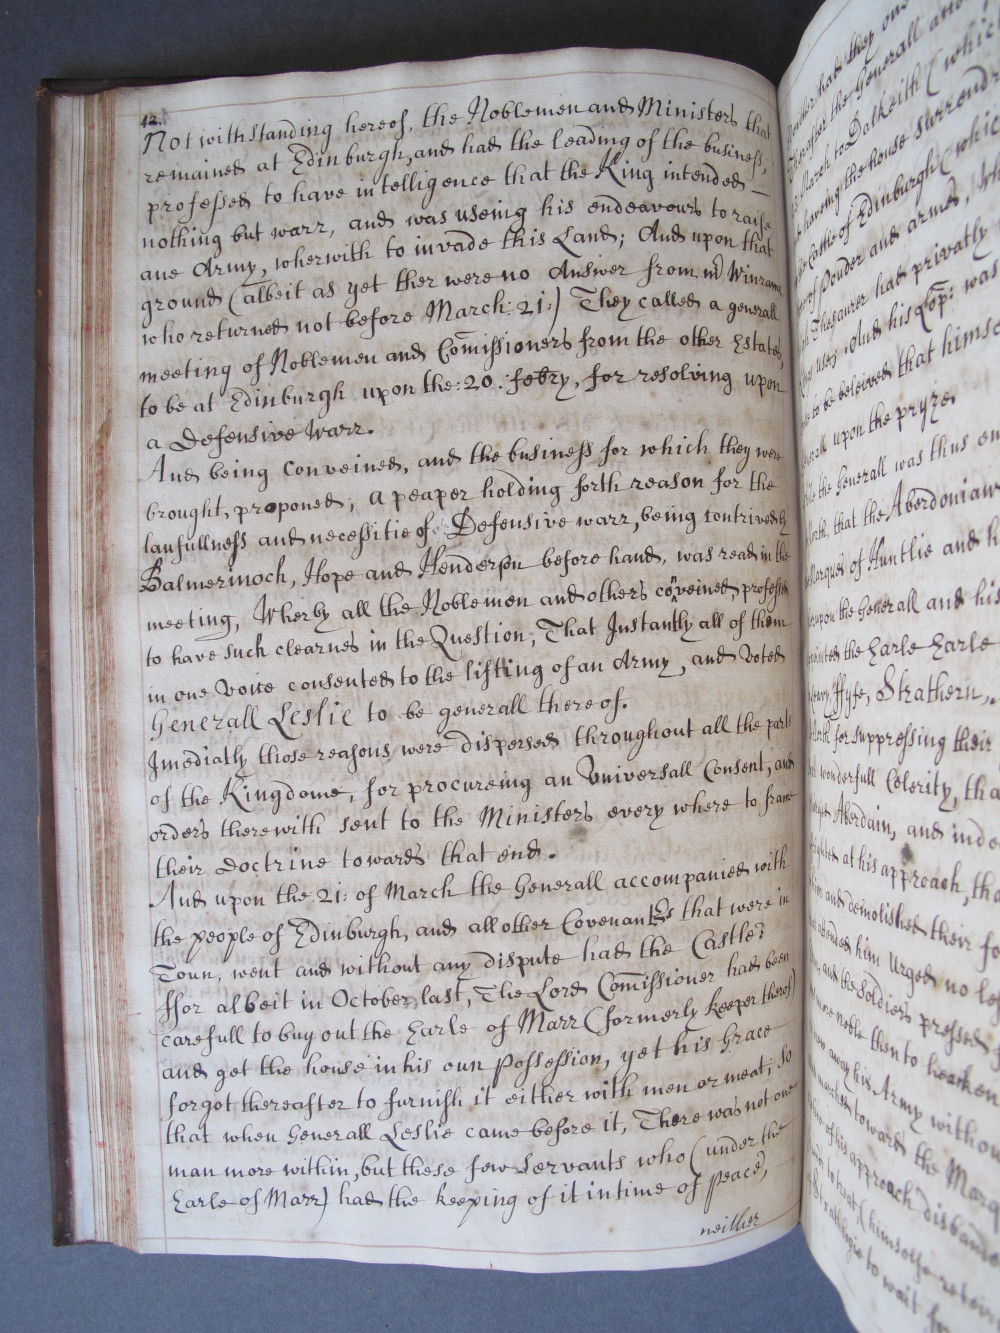 42.
Notwithstanding hereof, the Noblemen and Ministers that
remained at Edinburgh, and had the leading of the business,
professed to have intelligence that the King intended
nothing but warr, and was useing his endeavours to raise
ane Army, wherwith to invade this Land; And upon that
ground (albeit as yet ther were no Answer from mr Winrame
who returned not before March: 21:) They called a generall
meeting of Noblemen and Comissioners from the other Estates,
to be at Edinburgh upon the: 20: febry, for resolving upon
a Defensive warr.
And being Conveined, and the business for which they were
brought, proponed; a peaper holding forth reason for the
laufullness and necessitie of Defensive warr, being contrived by
Balmerinoch, Hope and Henderson before hand, was read in the
meeting, Wherby all the Noblemen and others coveined, professed
to have such clearnes in the Question, That Instantly all of them
in one voice consented to the lifting of an Army, and voted
Generall Leslie to be generall thereof.
Imediatly those reasons were dispersed throughout all the parts
of the Kingdome, for procureing an Universall Consent, and
orders therewith sent to the Ministers every where to frame
their doctrine towards that end.
And upon the 21: of March the Generall accompanied with
the people of Edinburgh, and all other Covenanters that were in
Toun, went and without any dispute had the Castle:
ffor albeit in October last, The Lord Comissioner had been
carefull to buy out the Earle of Marr (formerly keeper therof)
and get the house in his oun Possession, yet his Grace
forgot thereafter to furnish it either with men or meat; So
that when Generall Leslie came before it, There was not one
man more within, but these few Servants who (under the
Earle of Marr) had the keeping of it in time of peace,
neither
they
after the Generall
March to Dalkeith (which
haveing the house Surrend
Castle of Edinburgh (which
of Pouder and armes,
Thesaurer had privatly
uses, And his Lop: was
to be beleived that himse
upon the pryze.
the Generall was thus em
North, that the Aberdonians
Marques of Huntlie and h
upon the Generall and his
the Earle Earle
ffyfe, Strathern,
for suppressing their
wonderfull Celerity, tha
Aberdain, and inde
at his approach, tha
and demolished their fo
attended him Urged no les
and the Soldiers pressed
more noble then to hearken
away his Army withou
marched towards the Marq
of his approach disband
to treat (himselfe retei
Strathbogie to wait